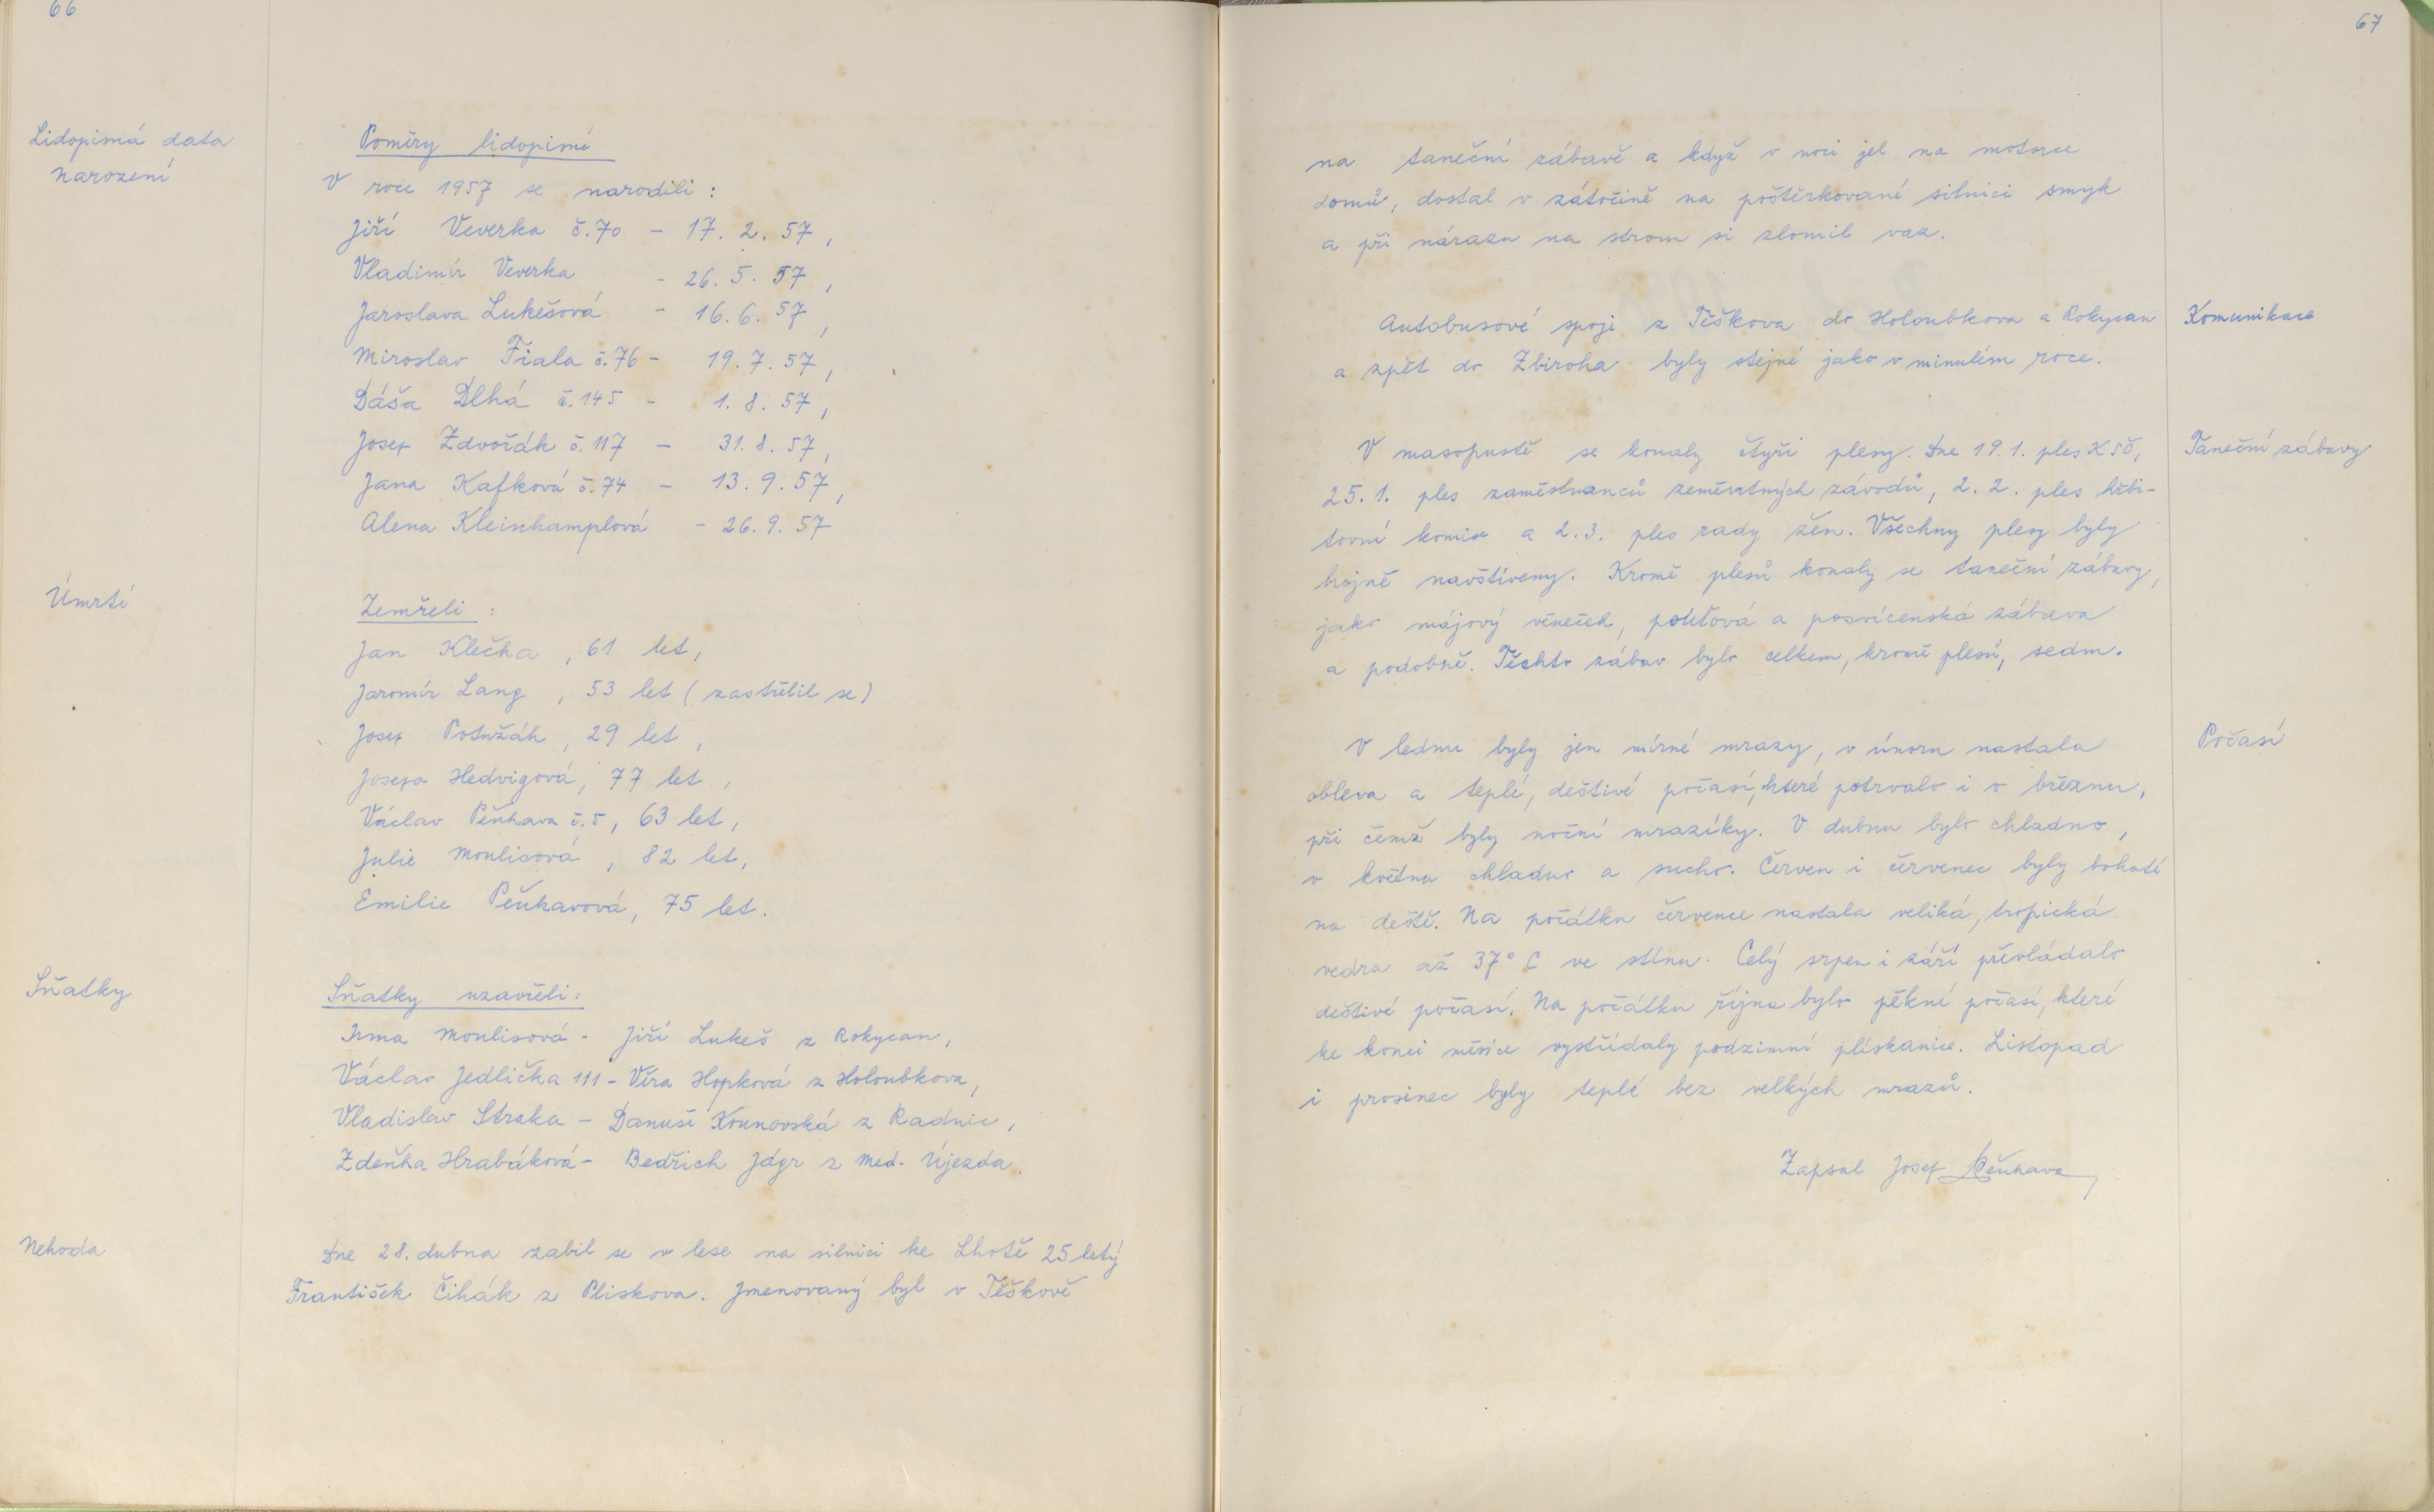 66
Lidopisná data
Narození
Poměry lidopisné
V roce 1957 se narodili :
Jiří Veverka č.70 - 17. 2. 57,
Vladimír Veverka - 26. 5. 57,
Jaroslava Lukešová - 16. 6. 57,
Miroslav Fiala č.76 - 19. 7. 57,
Dáša Dlhá č.145 - 1. 8. 57,
Josef Zdvořák č.117 - 31. 8. 57,
Jana Kafková č.74 - 13. 9. 57,
Alena Kleinhamplová - 26. 9. 57
Úmrtí
Zemřeli :
Jan Klečka, 61 let,
Jaromír Lang, 53 let (zastřelil se)
Josef Potužák, 29 let,
Josefa Hedvigová, 77 let,
Václav Pěnkava č.5, 63 let,
Julie Moulisová, 82 let,
Emilie Pěnkavová, 75 let.
Sňatky
Sňatky uzavřeli:
Irma Moulisová - Jiří Lukeš z Rokycan,
Václav Jedlička 111 - Věra Hopková z Holoubkova,
Vladislav Straka - Danuše Kounovská z Radnic,
Zdeňka Hrabáková - Bedřich Jágr z Med. Újezda.
Nehoda
Dne 28. dubna zabil se v lese na silnici ke Lhotě 25letý
František Čihák z Pliskova. Jmenovaný byl v Těškově
67
na taneční zábavě a když v noci jel na motorce
domů, dostal v zátočině na poštěrkované silnici smyk
a při nárazu na strom si zlomil vaz.
Komunikace
Autobusové spoje z Těškova do Holoubkova a Rokycan
a zpět do Zbiroha byly stejné jako v minulém roce.
Taneční zábavy
V masopustě se konaly čtyři plesy. Dne 19.1. ples KSČ,
25.1. ples zaměstnanců železničních závodů, 2.2. ples hřbi-
tovní komise a 2.3. ples rady žen. Všechny plesy byly
hojně navštíveny. Kromě plesů konaly se taneční zábavy,
jako májový věneček, pouťová a posvícenská zábava
a podobně. Těchto zábav bylo celkem, kromě plesů, sedm.
Počasí
V lednu byly jen mírné mrazy, v únoru nastala
obleva a teplé, deštivé počasí, které potrvalo i v březnu,
při čemž byly noční mrazíky. V dubnu bylo chladno,
v květnu chladno a sucho. Červen i červenec byly bohaté
na deště. Na počátku července nastala veliká, tropická
vedra až 37° C ve stínu. Celý srpen i září převládalo
deštivé počasí. Na počátku října bylo pěkné počasí, které
ke konci měsíce vystřídaly podzimní plískanice. Listopad
i prosinec byly teplé bez velkých mrazů.
Zapsal Josef Pěnkava